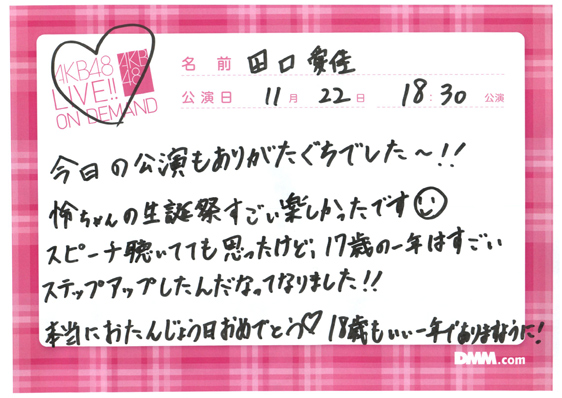 AKB48
LIVE!!
ON DEMAND
AKB
48
名前 田口愛佳
公演日 11月 22日 18:30 公演
今日の公演もありがたぐちでした〜!!
怜ちゃんの生誕祭すごい楽しかったです
スピーチ聴いてても思ったけど、17歳の一年はすごい
ステップアップしたんだなってなりました!!
本当におたんじょう日おめでとう♡ 18歳もいい一年でありますように!
DMM.com